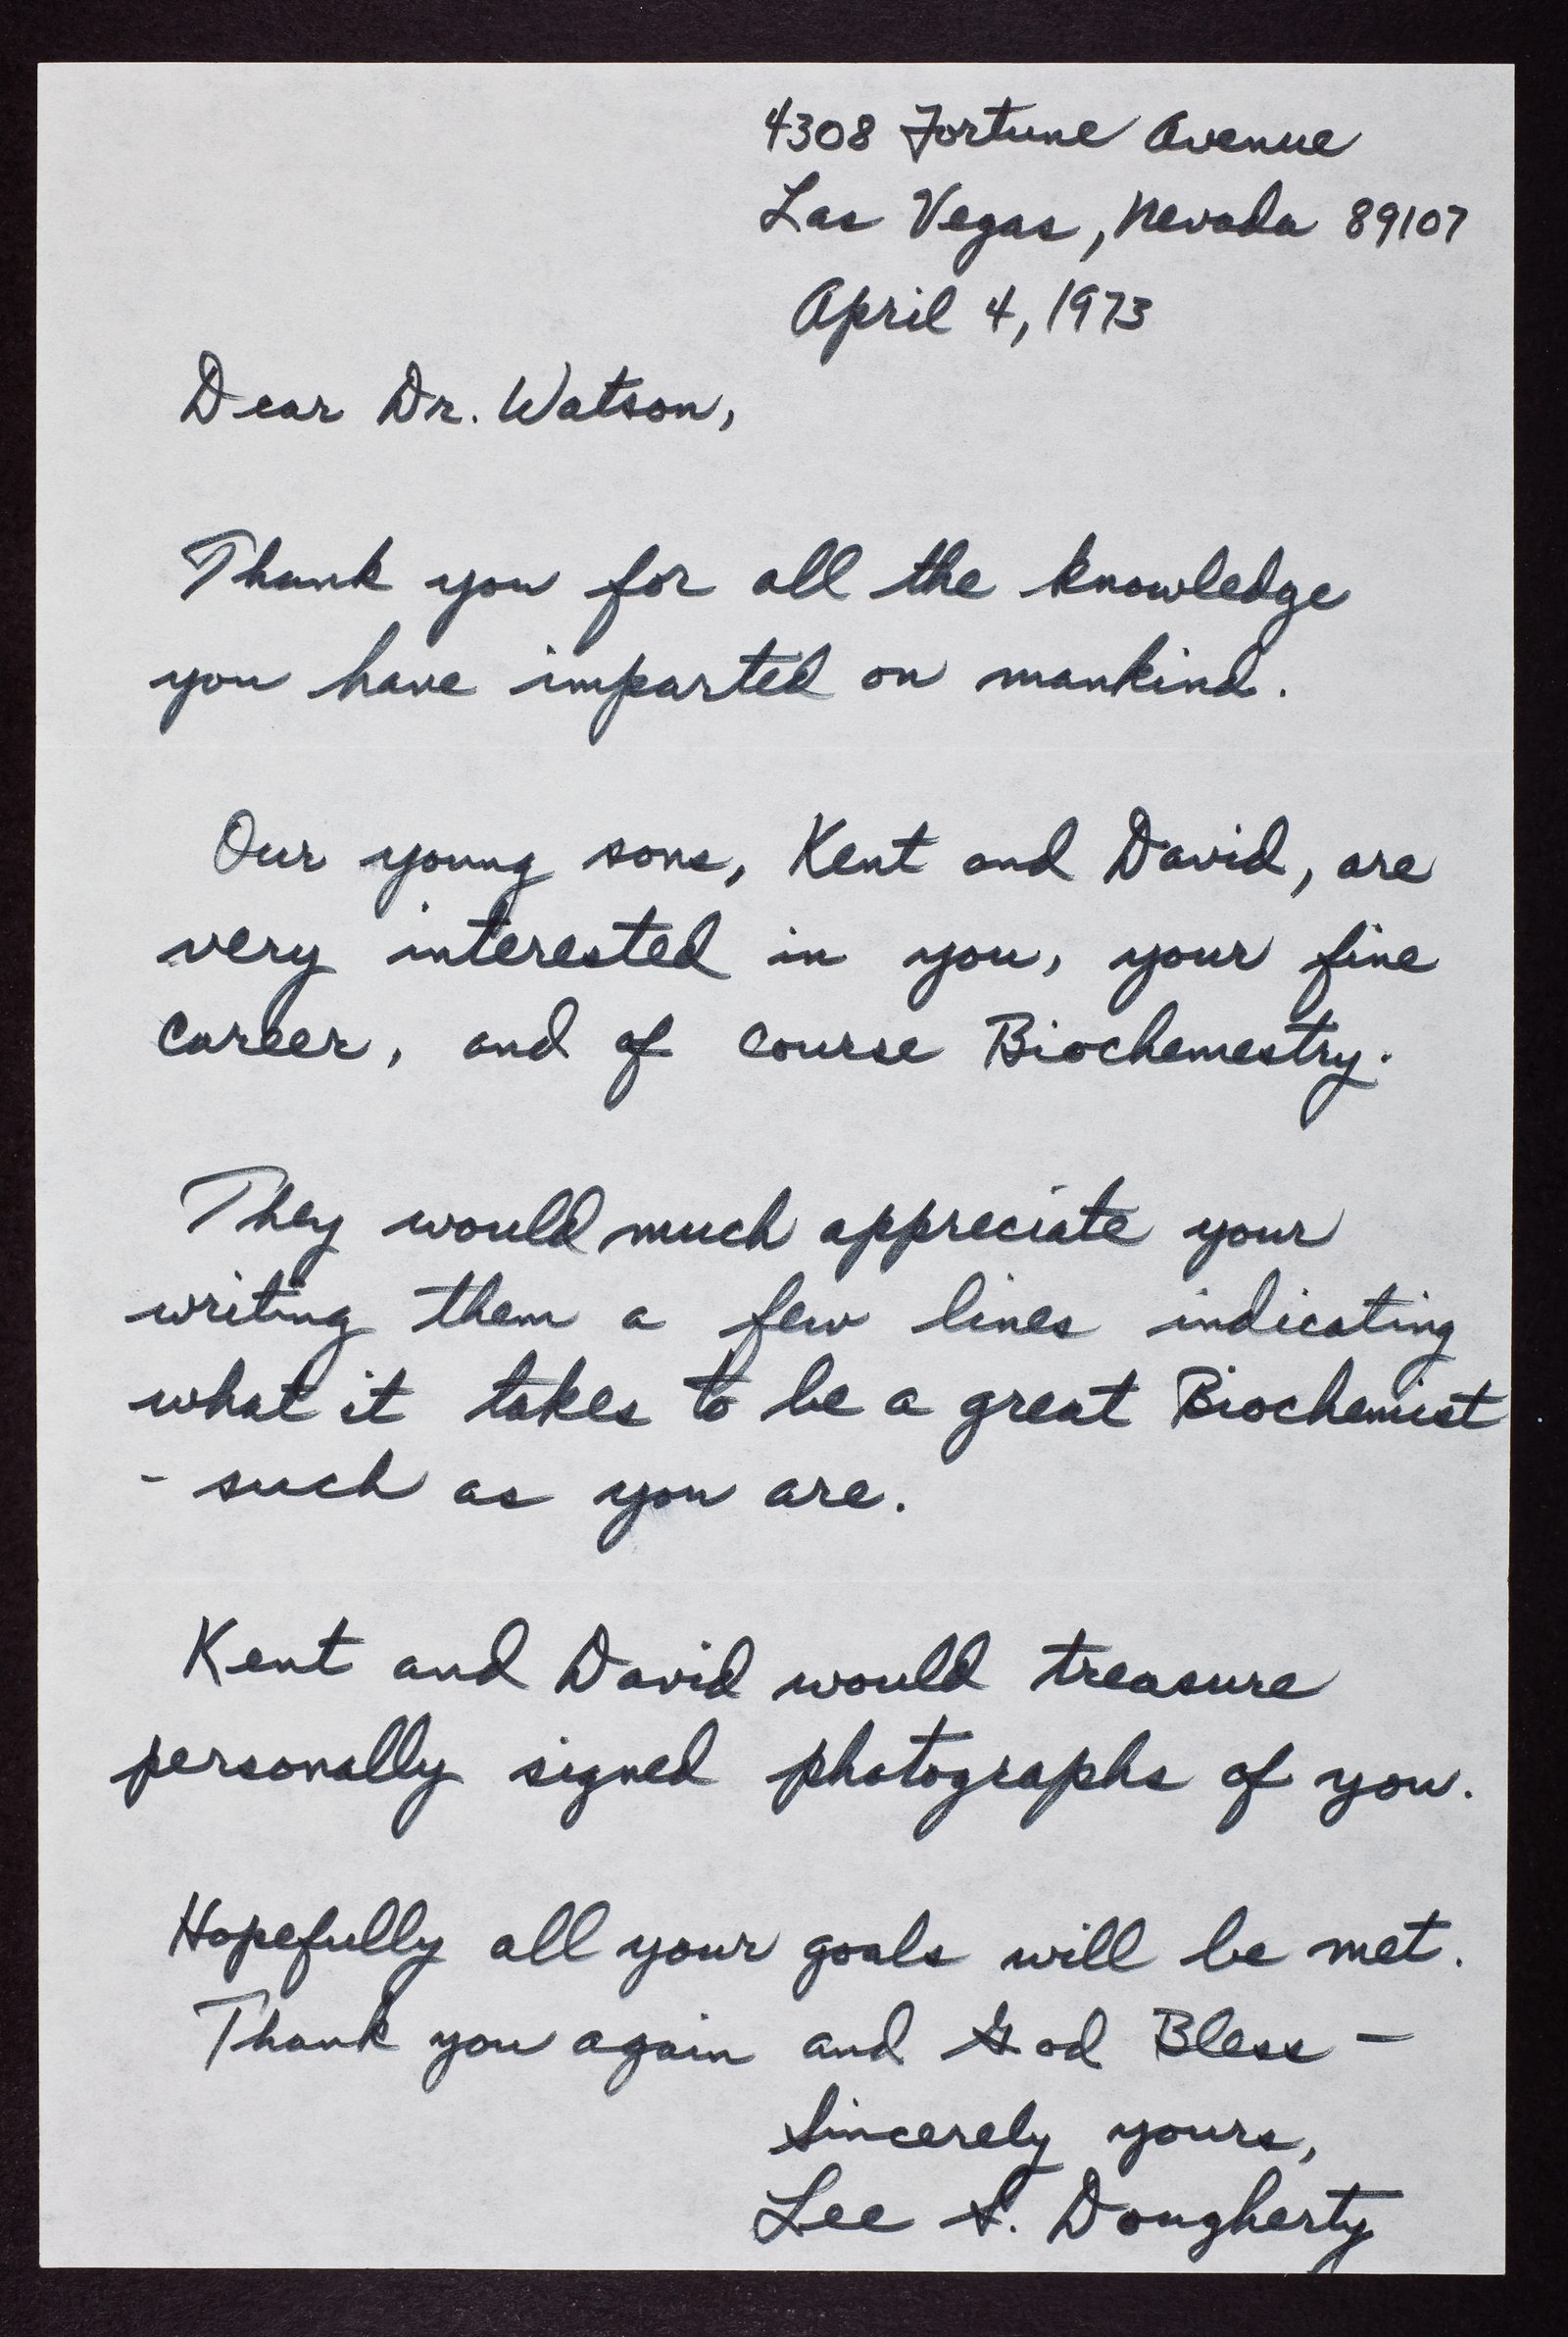 4308 Fortune Avenue
Las Vegas, Nevada 89107
April 4, 1973
Dear Dr. Watson,
Thank you for all the knowledge
you have imparted on mankind.
Our young sons, Kent and David, are
very interested in you, your fine
career, and of course Biochemestry.
They would much appreciate your
writing them a few lines indicating
what it takes to be a great Biochemist
- such as you are.
Kent and David would treasure
personally signed photographs of you.
Hopefully all your goals will be met.
Thank you again and God Bless -
Sincerely yours,
Lee S. Dougherty